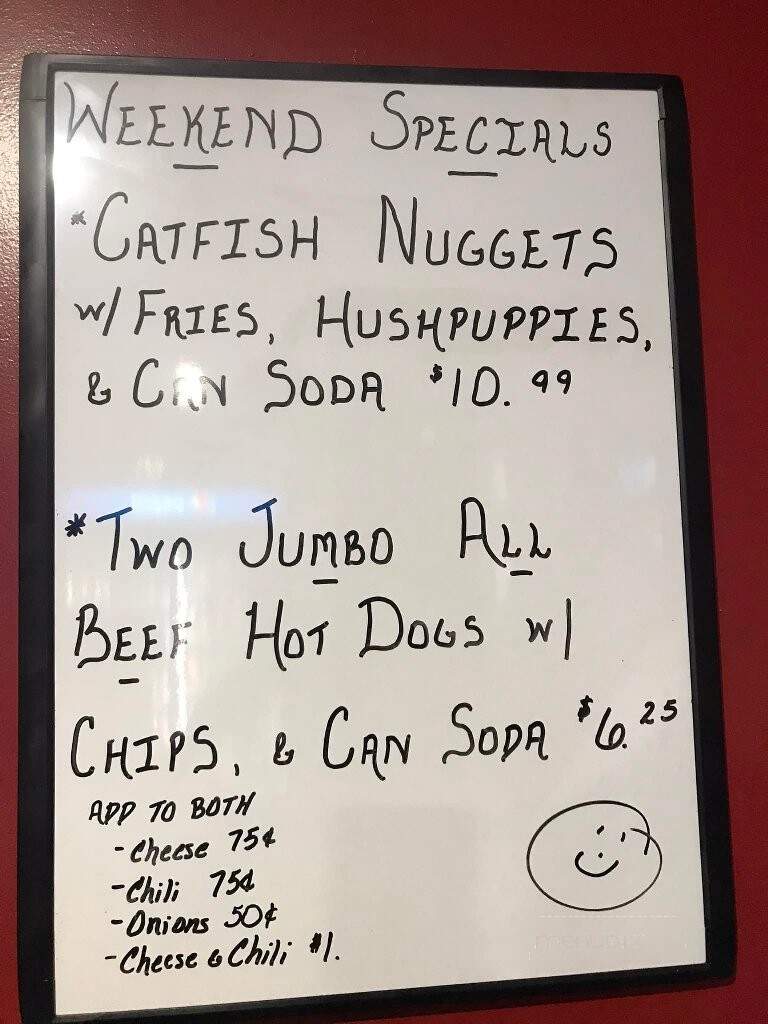 WEEKEND SPECIALS
*CATFISH NUGGETS
w/ FRIES, HUSHPUPPIES,
& CAN SODA $10.99
*TWO JUMBO ALL
BEEF HOT DOGS w/
CHIPS, & CAN SODA $6.25
ADD TO BOTH
- Cheese 75¢
- Chili 75¢
- Onions 50¢
- Cheese & Chili $1.